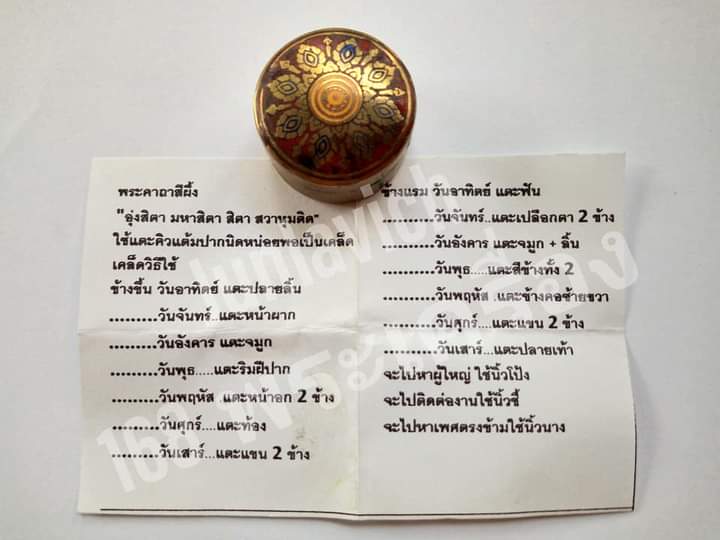 พระคาถาสีผึ้ง
"อุ่งสิตา มหาสิตา สิตา สวาหุมติด"
ใช้แตะคิวแต้มปากนิดหน่อยพอเป็นเคล็ด
เคล็ดวิธีใช้
ข้างขึ้น วันอาทิตย์ แตะปลายลิ้น
.........วันจันทร์..แตะหน้าผาก
.........วันอังคาร แตะจมูก
.........วันพุธ.....แตะริมฝีปาก
.........วันพฤหัส .แตะหน้าอก 2 ข้าง
.........วันศุกร์....แตะท้อง
.........วันเสาร์...แตะแขน 2 ข้าง
ข้างแรม วันอาทิตย์ แตะฟัน
..........วันจันทร์..แตะเปลือกตา 2 ข้าง
..........วันอังคาร แตะจมูก + ลิ้น
..........วันพุธ.....แตะสีข้างทั้ง 2
..........วันพฤหัส .แตะข้างคอซ้ายขวา
..........วันศุกร์....แตะแขน 2 ข้าง
..........วันเสาร์...แตะปลายเท้า
จะไปหาผู้ใหญ่ ใช้นิ้วโป้ง
จะไปติดต่องานใช้นิ้วชี้
จะไปหาเพศตรงข้ามใช้นิ้วนาง
168 พระเครื่อง